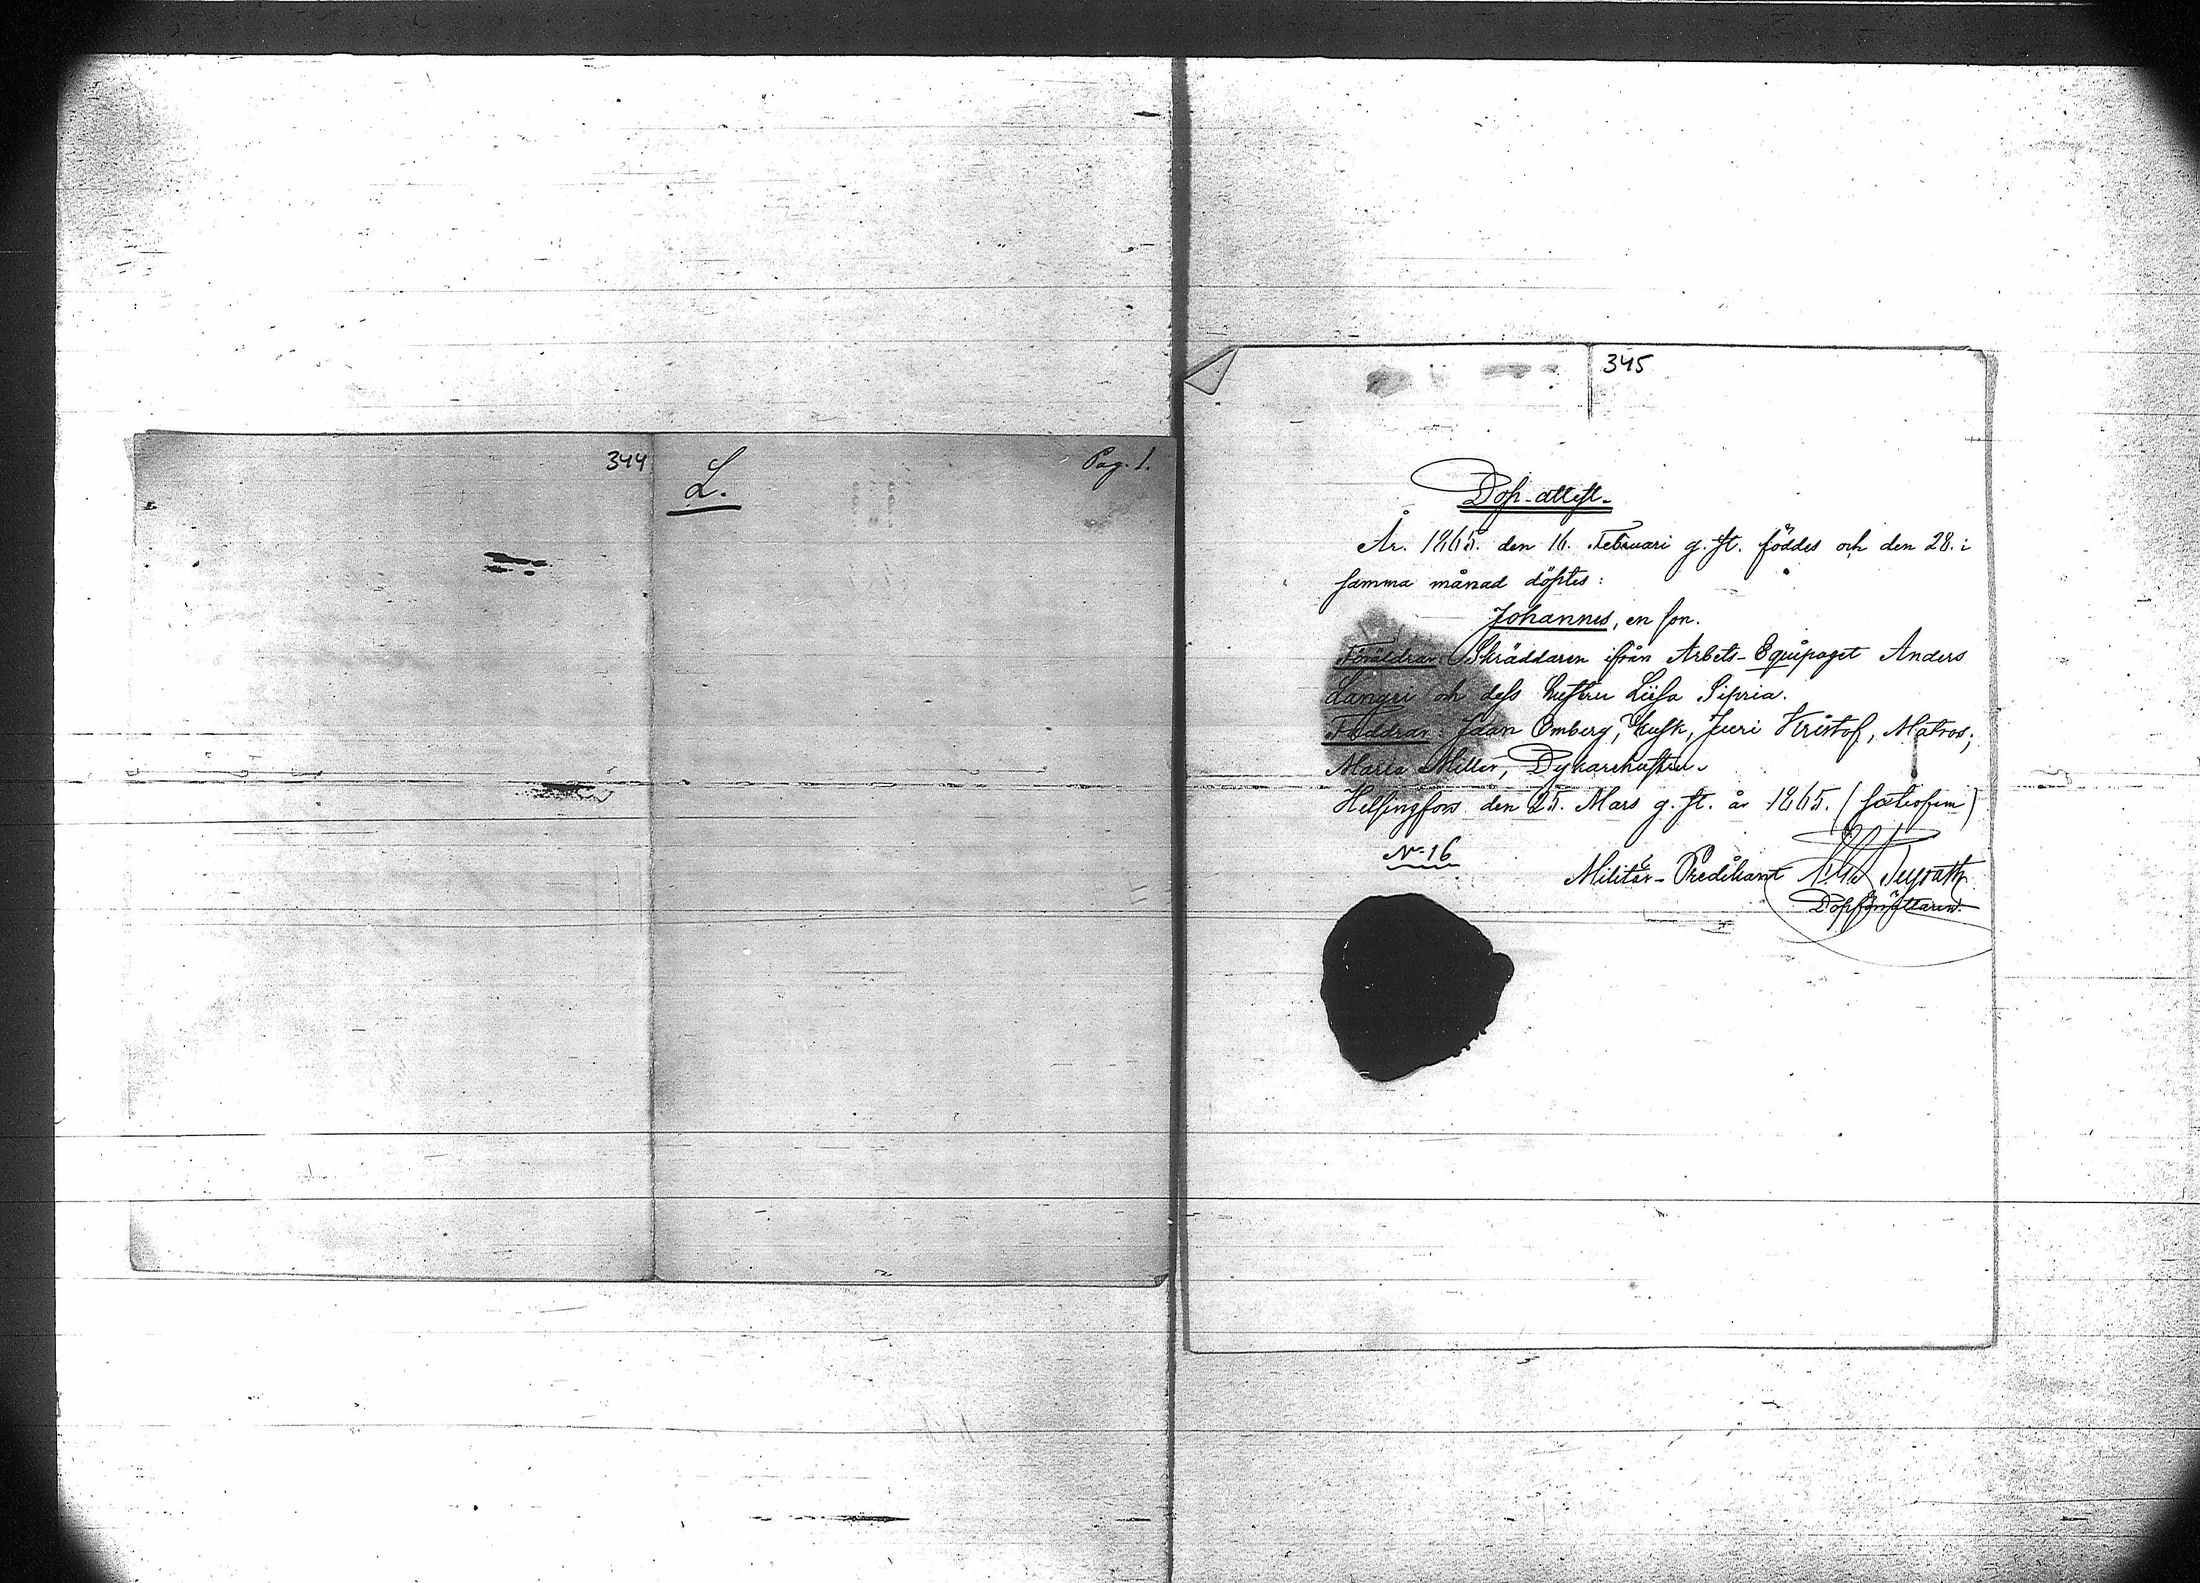 344
L.
Pag. 1.
345
Dop-attest.
År. 1865. den 16. Februari g. st. föddes och den 28. i
samma månad döptes:
Johannes, en son.
Föräldrar: Skräddaren ifrån Arbets-Equipaget Anders
Langei och dess hustru Liisa Sipria.
Faddrar: Jaan Omberg, Kusk, Juri Kristof, Matros;
Maria Miller, Dykarehustru.
Helsingfors den 25. Mars g. st. år 1865.
N-16
Militär-Predikant
Dopförrättaren.